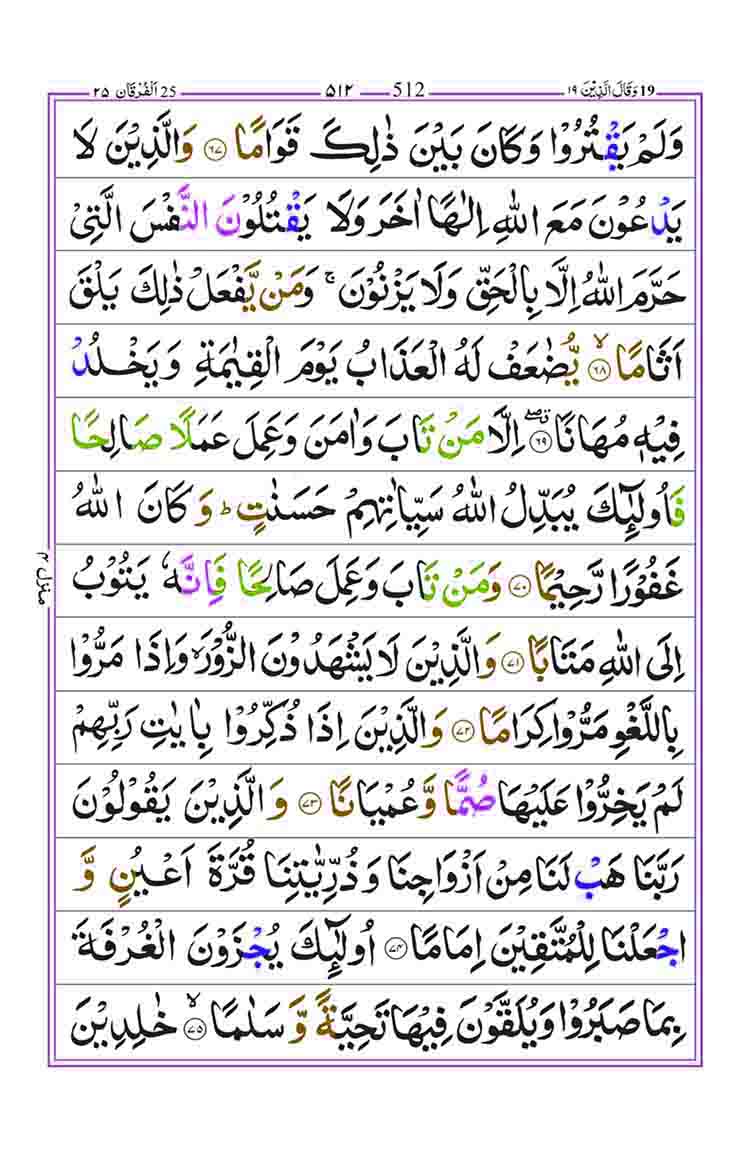 19 وَقَالَ الَّذِیْنَ ۱۹ 512 ۵۱۲ 25 اَلْفُرْقَان ۲۵
وَلَمْ یَقْتُرُوْا وَكَانَ بَیْنَ ذٰلِكَ قَوَامًا ۶۷ وَالَّذِیْنَ لَا
یَدْعُوْنَ مَعَ اللّٰهِ اِلٰهًا اٰخَرَ وَلَا یَقْتُلُوْنَ النَّفْسَ الَّتِیْ
حَرَّمَ اللّٰهُ اِلَّا بِالْحَقِّ وَلَا یَزْنُوْنَ ۚ وَمَنْ یَّفْعَلْ ذٰلِكَ یَلْقَ
اَثَامًا ۶۸ۙ یُّضٰعَفْ لَهُ الْعَذَابُ یَوْمَ الْقِیٰمَةِ وَیَخْلُدْ
فِیْهٖ مُهَانًا ۶۹ۖ اِلَّا مَنْ تَابَ وَاٰمَنَ وَعَمِلَ عَمَلًا صَالِحًا
فَاُولٰٓئِكَ یُبَدِّلُ اللّٰهُ سَیِّاٰتِهِمْ حَسَنٰتٍ ؕ وَكَانَ اللّٰهُ
غَفُوْرًا رَّحِیْمًا ۷۰ وَمَنْ تَابَ وَعَمِلَ صَالِحًا فَاِنَّهٗ یَتُوْبُ
اِلَی اللّٰهِ مَتَابًا ۷۱ وَالَّذِیْنَ لَا یَشْهَدُوْنَ الزُّوْرَ ۙ وَاِذَا مَرُّوْا
بِاللَّغْوِ مَرُّوْا كِرَامًا ۷۲ وَالَّذِیْنَ اِذَا ذُكِّرُوْا بِاٰیٰتِ رَبِّهِمْ
لَمْ یَخِرُّوْا عَلَیْهَا صُمًّا وَّعُمْیَانًا ۷۳ وَالَّذِیْنَ یَقُوْلُوْنَ
رَبَّنَا هَبْ لَنَا مِنْ اَزْوَاجِنَا وَذُرِّیّٰتِنَا قُرَّةَ اَعْیُنٍ وَّ
اجْعَلْنَا لِلْمُتَّقِیْنَ اِمَامًا ۷۴ اُولٰٓئِكَ یُجْزَوْنَ الْغُرْفَةَ
بِمَا صَبَرُوْا وَیُلَقَّوْنَ فِیْهَا تَحِیَّةً وَّسَلٰمًا ۷۵ۙ خٰلِدِیْنَ
منزل ۴